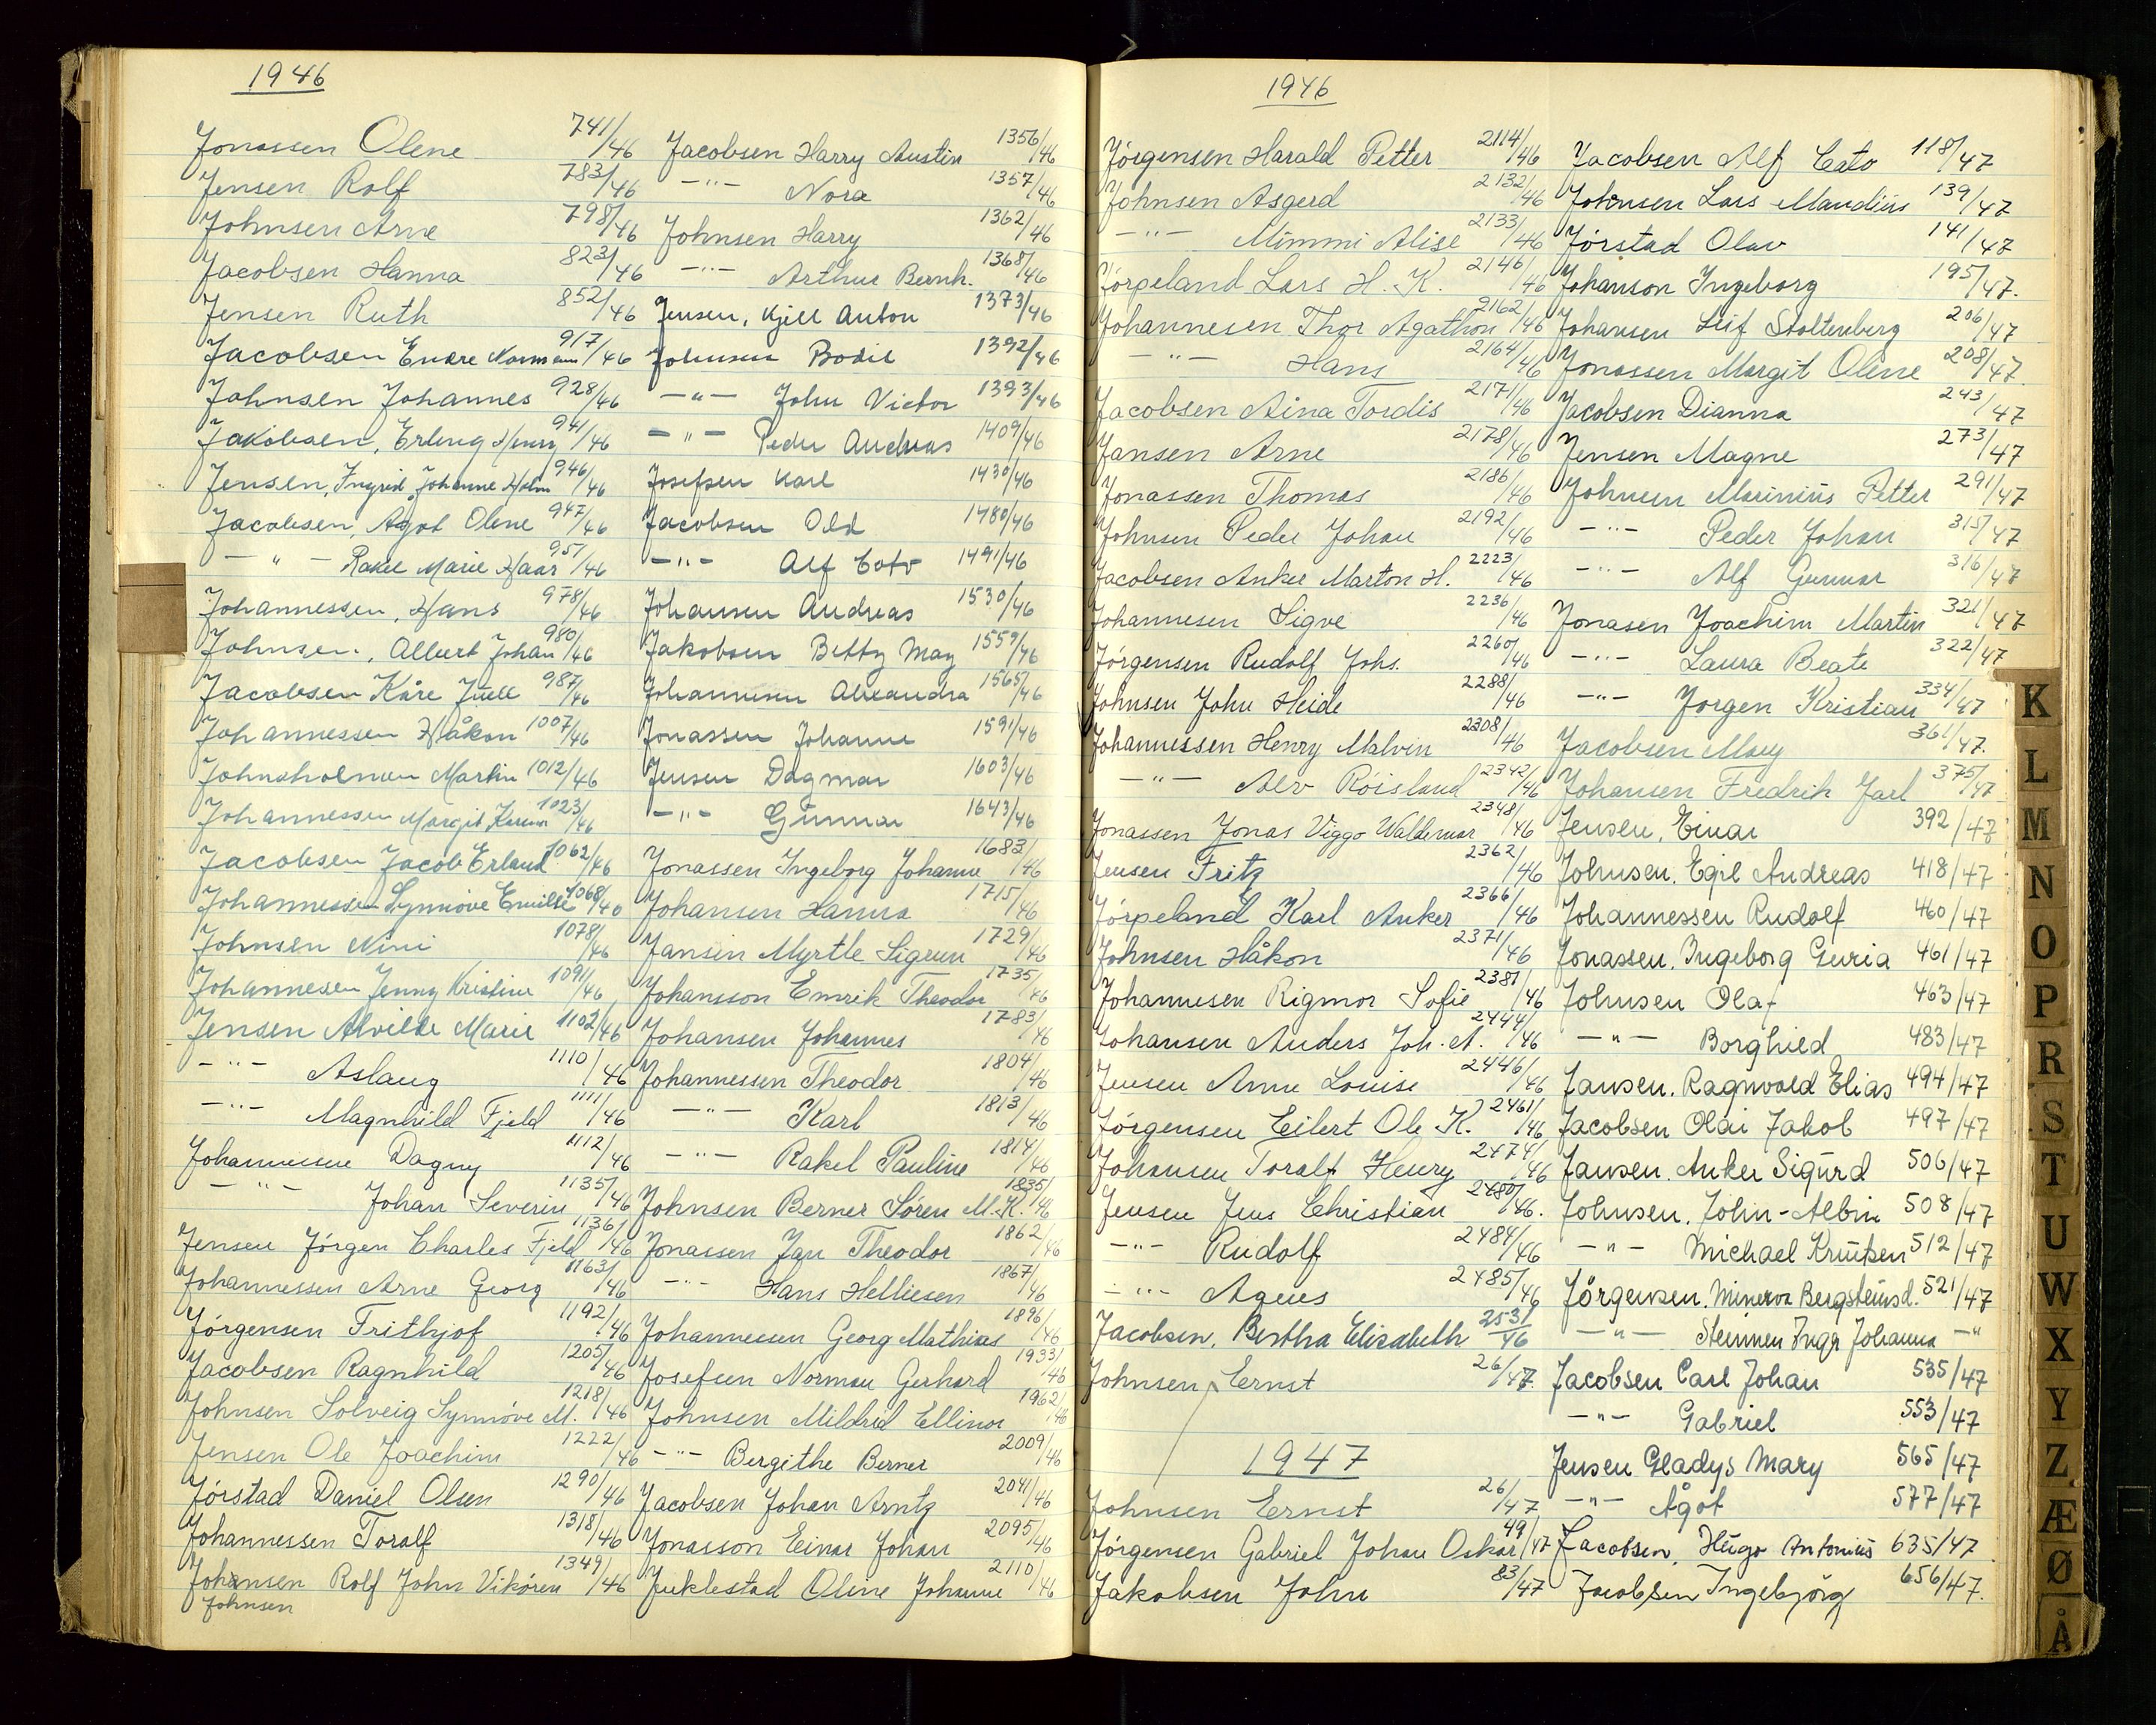 1946
Jonassen Olene 741/46
Jensen Rolf 783/46
Johnsen Arne 798/46
Jacobsen Hanna 823/46
Jensen Ruth 852/46
Jacobsen Endre Normann 917/46
Johnsen Johannes 928/46
Jakobsen, Erling Henry 941/46
Jensen, Ingrid Johanne Holm 946/46
Jacobsen, Ågot Olene 947/46
— " — Rakel Marie Haar 957/46
Johannessen, Hans 978/46
Johnsen, Albert Johan 980/46
Jacobsen Kåre Juell 987/46
Johannessen Håkon 1007/46
Johnsholmen Martin 1012/46
Johannessen Margit Karina 1023/46
Jacobsen Jacob Erland 1062/46
Johannessen Synnöve Emilie 1068/46
Johnsen Nini 1078/46
Johannesen Jenny Kristine 1091/46
Jensen Alvilde Marie 1102/46
— " — Aslaug 1110/46
— " — Magnhild Fjeld 1111/46
Johannessen Dagny 1112/46
— " — Johan Severin 1135/46
Jensen Jörgen Charles Fjeld 1136/46
Johannessen Arne Georg 1163/46
Jörgensen Frithjof 1192/46
Jacobsen Ragnhild 1205/46
Johnsen Solveig Synnöve M. 1218/46
Jensen Ole Joachim 1222/46
Jörstad Daniel Olsen 1290/46
Johannessen Toralf 1318/46
Johansen Rolf John Vikören 1349/46
Johnsen
Jacobsen Harry Austin 1356/46
— " — Nora 1357/46
Johnsen Harry 1362/46
— " — Arthur Bernh. 1368/46
Jensen, Kjell Anton 1373/46
Johnsen Bodil 1392/46
— " — John Victor 1393/46
— " — Peder Andreas 1409/46
Josefsen Karl 1430/46
Jacobsen Odd 1480/46
— " — Alf Cato 1491/46
Johansen Andreas 1530/46
Jakobsen Betty May 1559/46
Johannesen Alexandra 1565/46
Jonassen Johanne 1591/46
Jensen Dagmar 1603/46
— " — Gunnar 1643/46
Jonassen Ingeborg Johanne 1683/46
Johansen Hanna 1715/46
Jansen Myrtle Sigrun 1729/46
Johansson Emrik Theodor 1735/46
Johansen Johannes 1783/46
Johannessen Theodor 1804/46
— " — Karl 1813/46
— " — Rakel Pauline 1814/46
Johnsen Berner Sören M.K. 1835/46
Jonassen Jan Theodor 1862/46
— " — Hans Helliesen 1867/46
Johannessen Georg Mathias 1896/46
Josefsen Norman Gerhard 1933/46
Johnsen Mildrid Ellinor 1962/46
— " — Bergithe Berner 2009/46
Jacobsen Johan Arntz 2041/46
Jonasson Einar Johan 2095/46
Juklestad Oline Johanne 2110/46
1946
Jörgensen Harald Petter 2114/46
Johnsen Asgerd 2132/46
— " — Mimmi Alise 2133/46
Jörpeland Lars H. K. 2146/46
Johannesen Thor Agathon 2162/46
— " — Hans 2164/46
Jacobsen Aina Tordis 2171/46
Jansen Arne 2178/46
Jonassen Thomas 2186/46
Johnsen Peder Johan 2192/46
Jacobsen Anker Marton H. 2223/46
Johannesen Sigve 2236/46
Jörgensen Rudolf Johs. 2260/46
Johnsen John Heide 2288/46
Johannessen Henry Malvin 2308/46
— " — Alv Röisland 2342/46
Jonassen Jonas Viggo Waldemar 2348/46
Jensen Fritz 2362/46
Jörpeland Karl Anker 2366/46
Johnsen Håkon 2371/46
Johannesen Rigmor Sofie 2381/46
Johansen Anders Joh. A. 2444/46
Jensen Anne Louise 2446/46
Jörgensen Eilert Ole K. 2461/46
Johansen Toralf Henry 2474/46
Jensen Jens Christian 2480/46.
— " — Rudolf 2484/46
— " — Agnes 2485/46
Jacobsen, Bertha Elisabeth 2531/46
Johnsen, Ernst 26/47.
1947
Johnsen Ernst 26/47
Jörgensen Gabriel Johan Oskar 49/47
Jakobsen John 83/47
Jacobsen Alf Cato 118/47
Johnsen Lars Mandius 139/47
Jörstad Olav 141/47
Johanson Ingeborg 195/47.
Johansen Leif Stoltenberg 206/47
Jonassen Margit Olene 208/47.
Jacobsen Dianna 243/47
Jensen Magne 273/47
Johnsen Marinius Petter 291/47
— " — Peder Johan 315/47
— " — Alf Gunnar 316/47
Jonasen Joachim Martin 321/47
— " — Laura Beate 322/47
— " — Jorgen Kristian 334/47
Jacobsen May 361/47.
Johansen Fredrik Jarl 375/47
Jensen, Einar 392/47
Johnsen, Egil Andreas 418/47
Johannessen Rudolf 460/47
Jonassen, Ingeborg Guria 461/47
Johnsen Olaf 463/47
— " — Borghild 483/47
Jansen, Ragnvald Elias 494/47
Jacobsen Olai Jakob 497/47
Jansen, Anker Sigurd 506/47
Johnsen, John-Albin 508/47
— " — Michael Knutsen 512/47
Jörgensen, Minerva Bergsteinsd. 521/47
— " — Steinnen Inga Johanna — " —
Jacobsen Carl Johan 535/47
— " — Gabriel 553/47
Jensen Gladys Mary 565/47
— " — Ågot 577/47
Jacobsen, Hugo Antonius 635/47
Jacobsen Ingebjörg 656/47.
K
L
M
N
O
P
R
S
T
U
W
X
Y
Z
Æ
Ø
Å